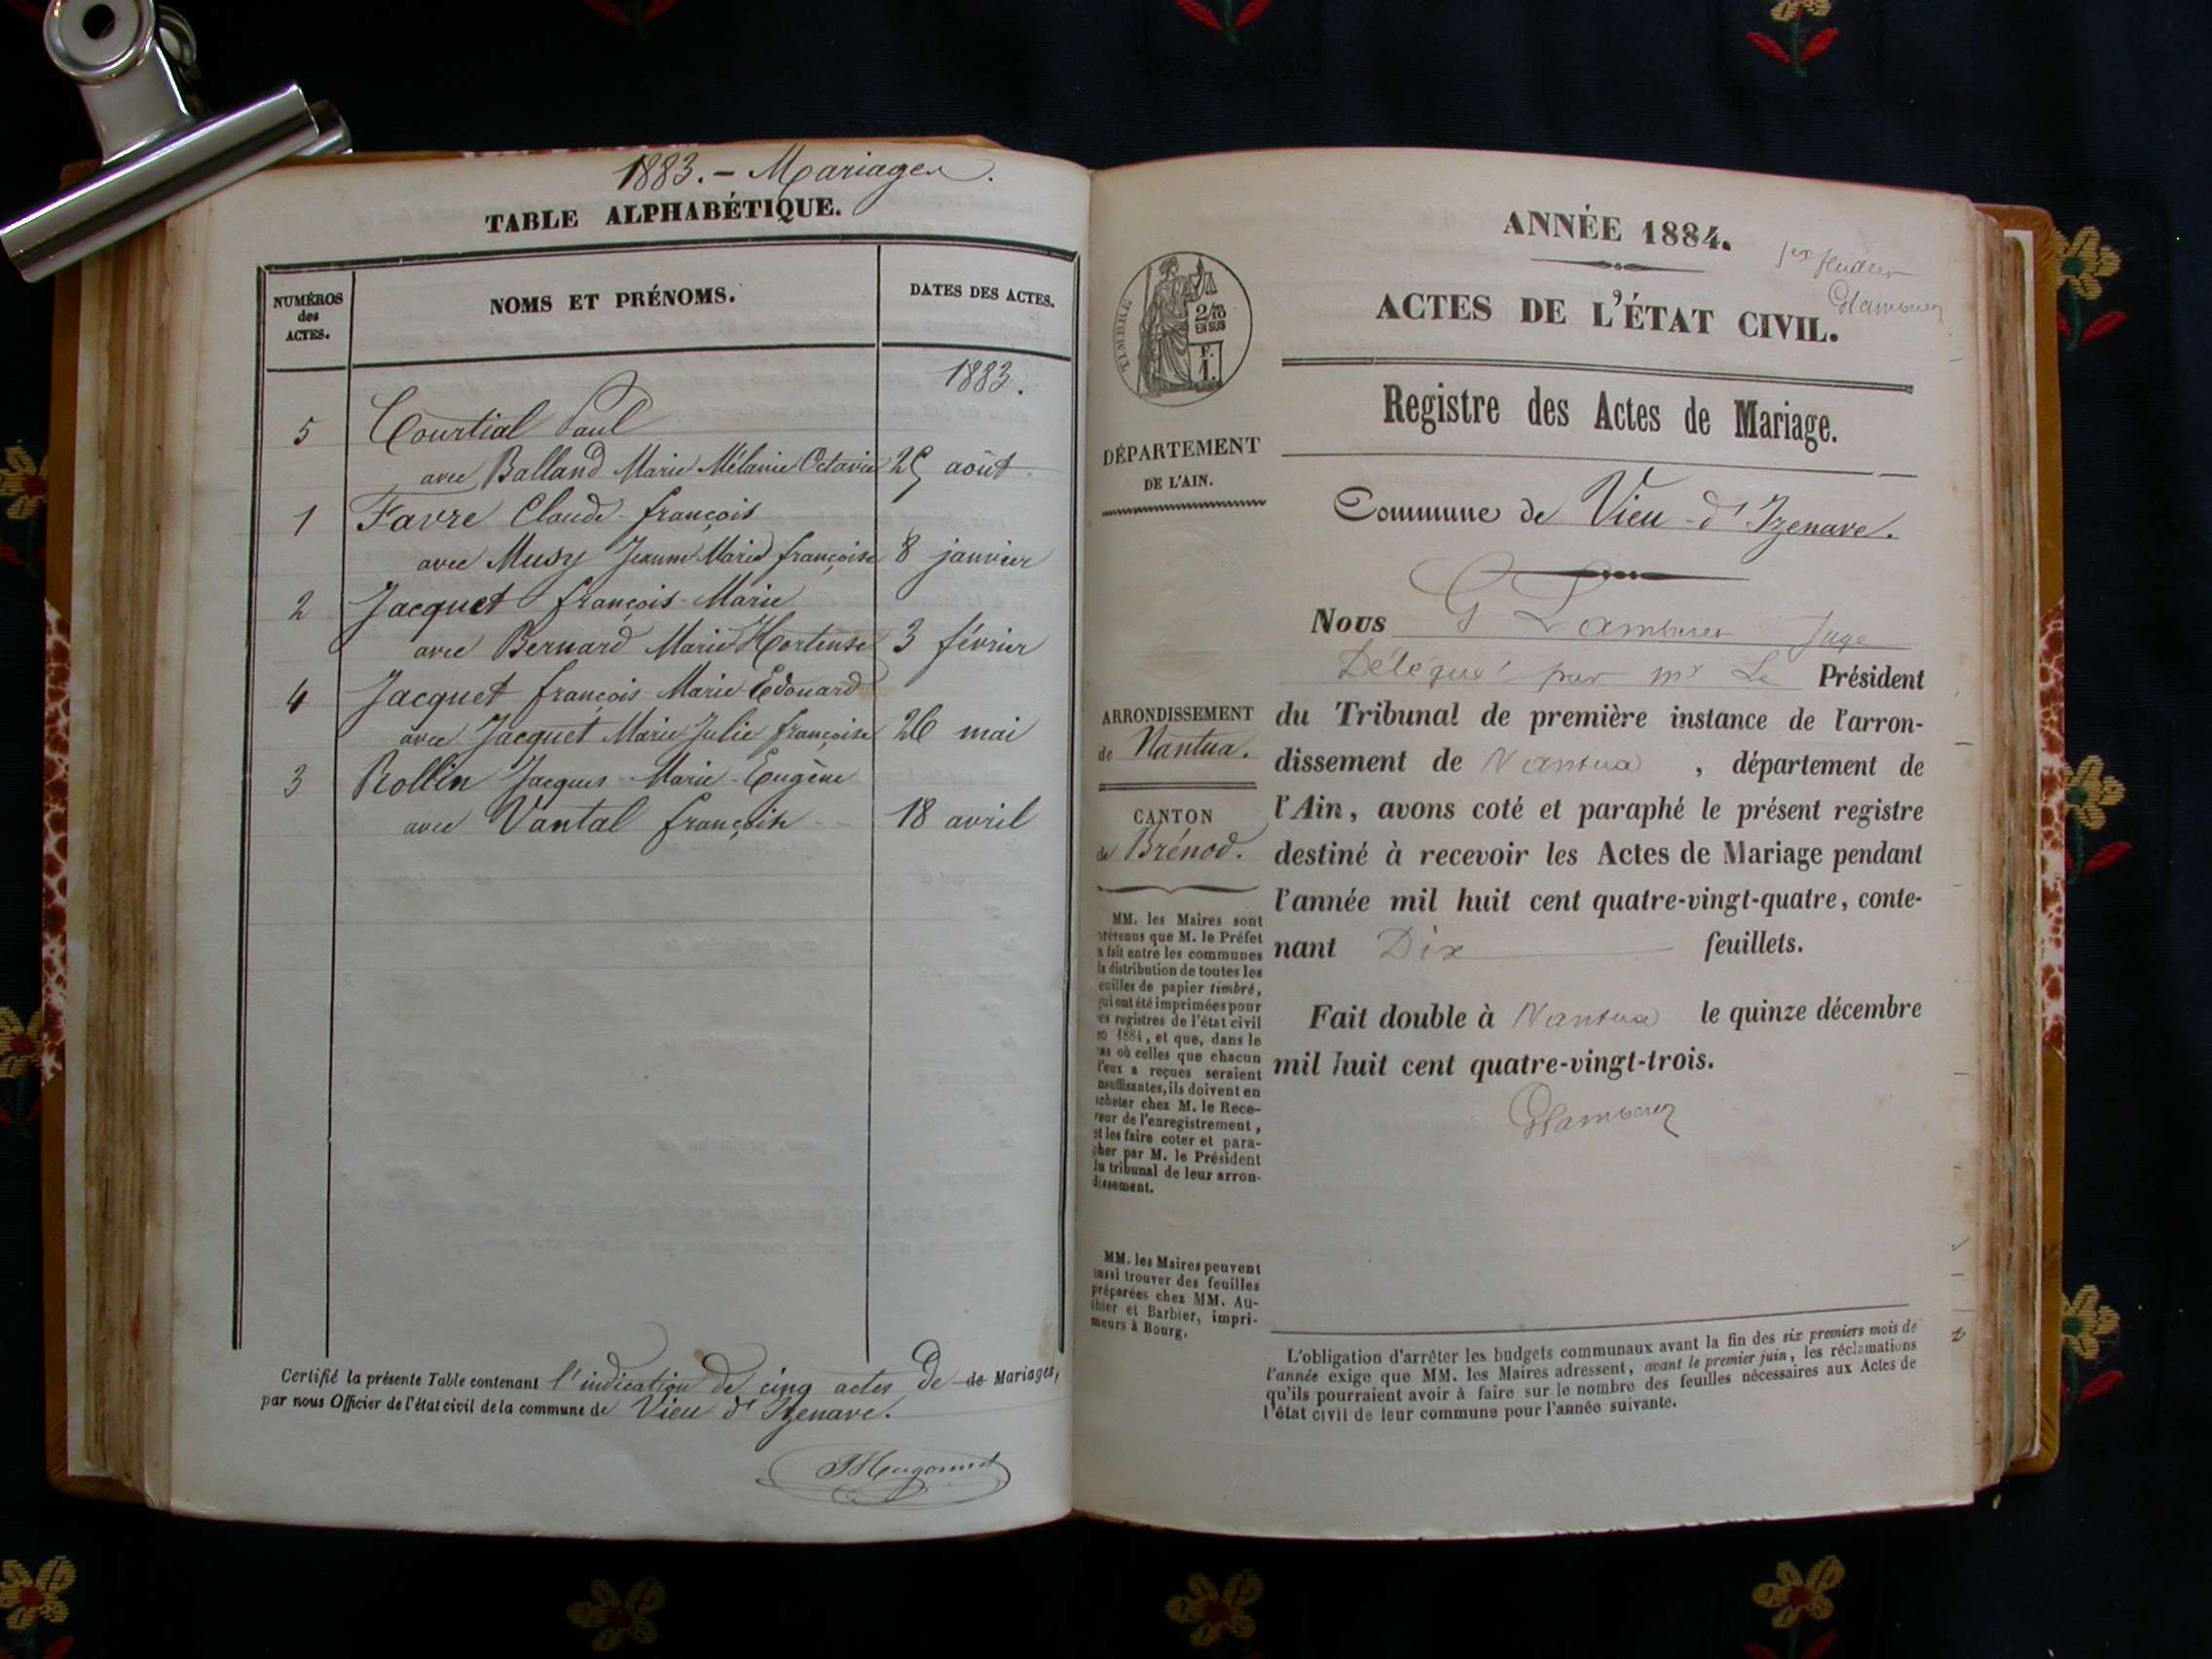 1883. - Mariages.
TABLE ALPHABÉTIQUE.
NUMÉROS
des
ACTES.
NOMS ET PRÉNOMS.
DATES DES ACTES.
1883.
5 Courtial Paul
avec Balland Marie Mélanie Octavie 25 août
1 Favre Claude-françois
avec Musy Jeanne Marie françoise 8 janvier
2 Jacquet françois-Marie
avec Bernard Marie Hortense 3 février
4 Jacquet françois-Marie Edouard
avec Jacquet Marie Julie françoise 26 mai
3 Rollin Jacques-Marie-Eugène
avec Vantal françoise 18 avril
Certifié la présente Table contenant l'indication de cinq actes de de Mariages,
par nous Officier de l'état civil de la commune de Vieu d'Izenave.
Hugonnet
ANNÉE 1884.
1er feuillet
GLamberet
ACTES DE L'ÉTAT CIVIL.
TIMBRE
2/10
EN SUS
F.
1.
Registre des Actes de Mariage.
DÉPARTEMENT
DE L'AIN.
Commune de Vieu-d'Izenave.
Nous G Lamberet Juge
Délégué par mr Le Président
du Tribunal de première instance de l'arron-
dissement de Nantua, département de
l'Ain, avons coté et paraphé le présent registre
destiné à recevoir les Actes de Mariage pendant
l'année mil huit cent quatre-vingt-quatre, conte-
nant Dix feuillets.
Fait double à Nantua le quinze décembre
mil huit cent quatre-vingt-trois.
GLamberet
ARRONDISSEMENT
de Nantua.
CANTON
de Brénod.
MM. les Maires sont
prévenus que M. le Préfet
a fait entre les communes
la distribution de toutes les
feuilles de papier timbré,
qui ont été imprimées pour
les registres de l'état civil
en 1884, et que, dans le
cas où celles que chacun
d'eux a reçues seraient
insuffisantes, ils doivent en
acheter chez M. le Rece-
veur de l'enregistrement,
et les faire coter et para-
pher par M. le Président
du tribunal de leur arron-
dissement.
MM. les Maires peuvent
aussi trouver des feuilles
préparées chez MM. Au-
thier et Barbier, impri-
meurs à Bourg.
L'obligation d'arrêter les budgets communaux avant la fin des six premiers mois de
l'année exige que MM. les Maires adressent, avant le premier juin, les réclamations
qu'ils pourraient avoir à faire sur le nombre des feuilles nécessaires aux Actes de
l'état civil de leur commune pour l'année suivante.